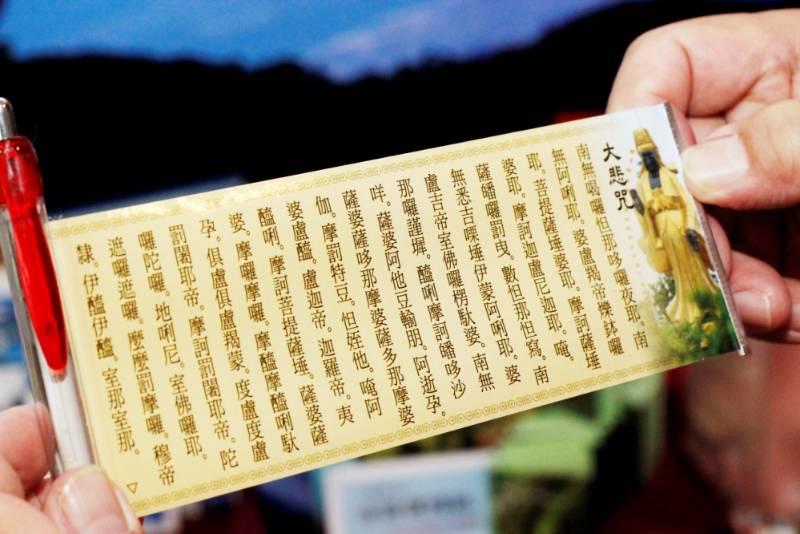 大悲咒
南無喝囉但那哆囉夜耶。南
無阿唎耶。婆盧羯帝爍鉢囉
耶。菩提薩埵婆耶。摩訶薩埵
婆耶。摩訶迦盧尼迦耶。唵。
薩皤囉罰曳。數但那但寫。南
無悉吉嘌埵伊蒙阿唎耶。婆
盧吉帝室佛囉楞馱婆。南無
那囉謹墀。醯唎摩訶皤哆沙
咩。薩婆阿他豆輸朋。阿逝孕。
薩婆薩哆那摩婆薩多那摩婆
伽。摩罰特豆。但姪他。唵阿
婆盧醯。盧迦帝。迦羅帝。夷
醯唎。摩訶菩提薩埵。薩婆薩
婆。摩囉摩囉。摩醯摩醯唎馱
孕。俱盧俱盧羯蒙。度盧度盧
罰闍耶帝。摩訶罰闍耶帝。陀
囉陀囉。地唎尼。室佛囉耶。
遮囉遮囉。摩麼罰摩囉。穆帝
隸。伊醯伊醯。室那室那。